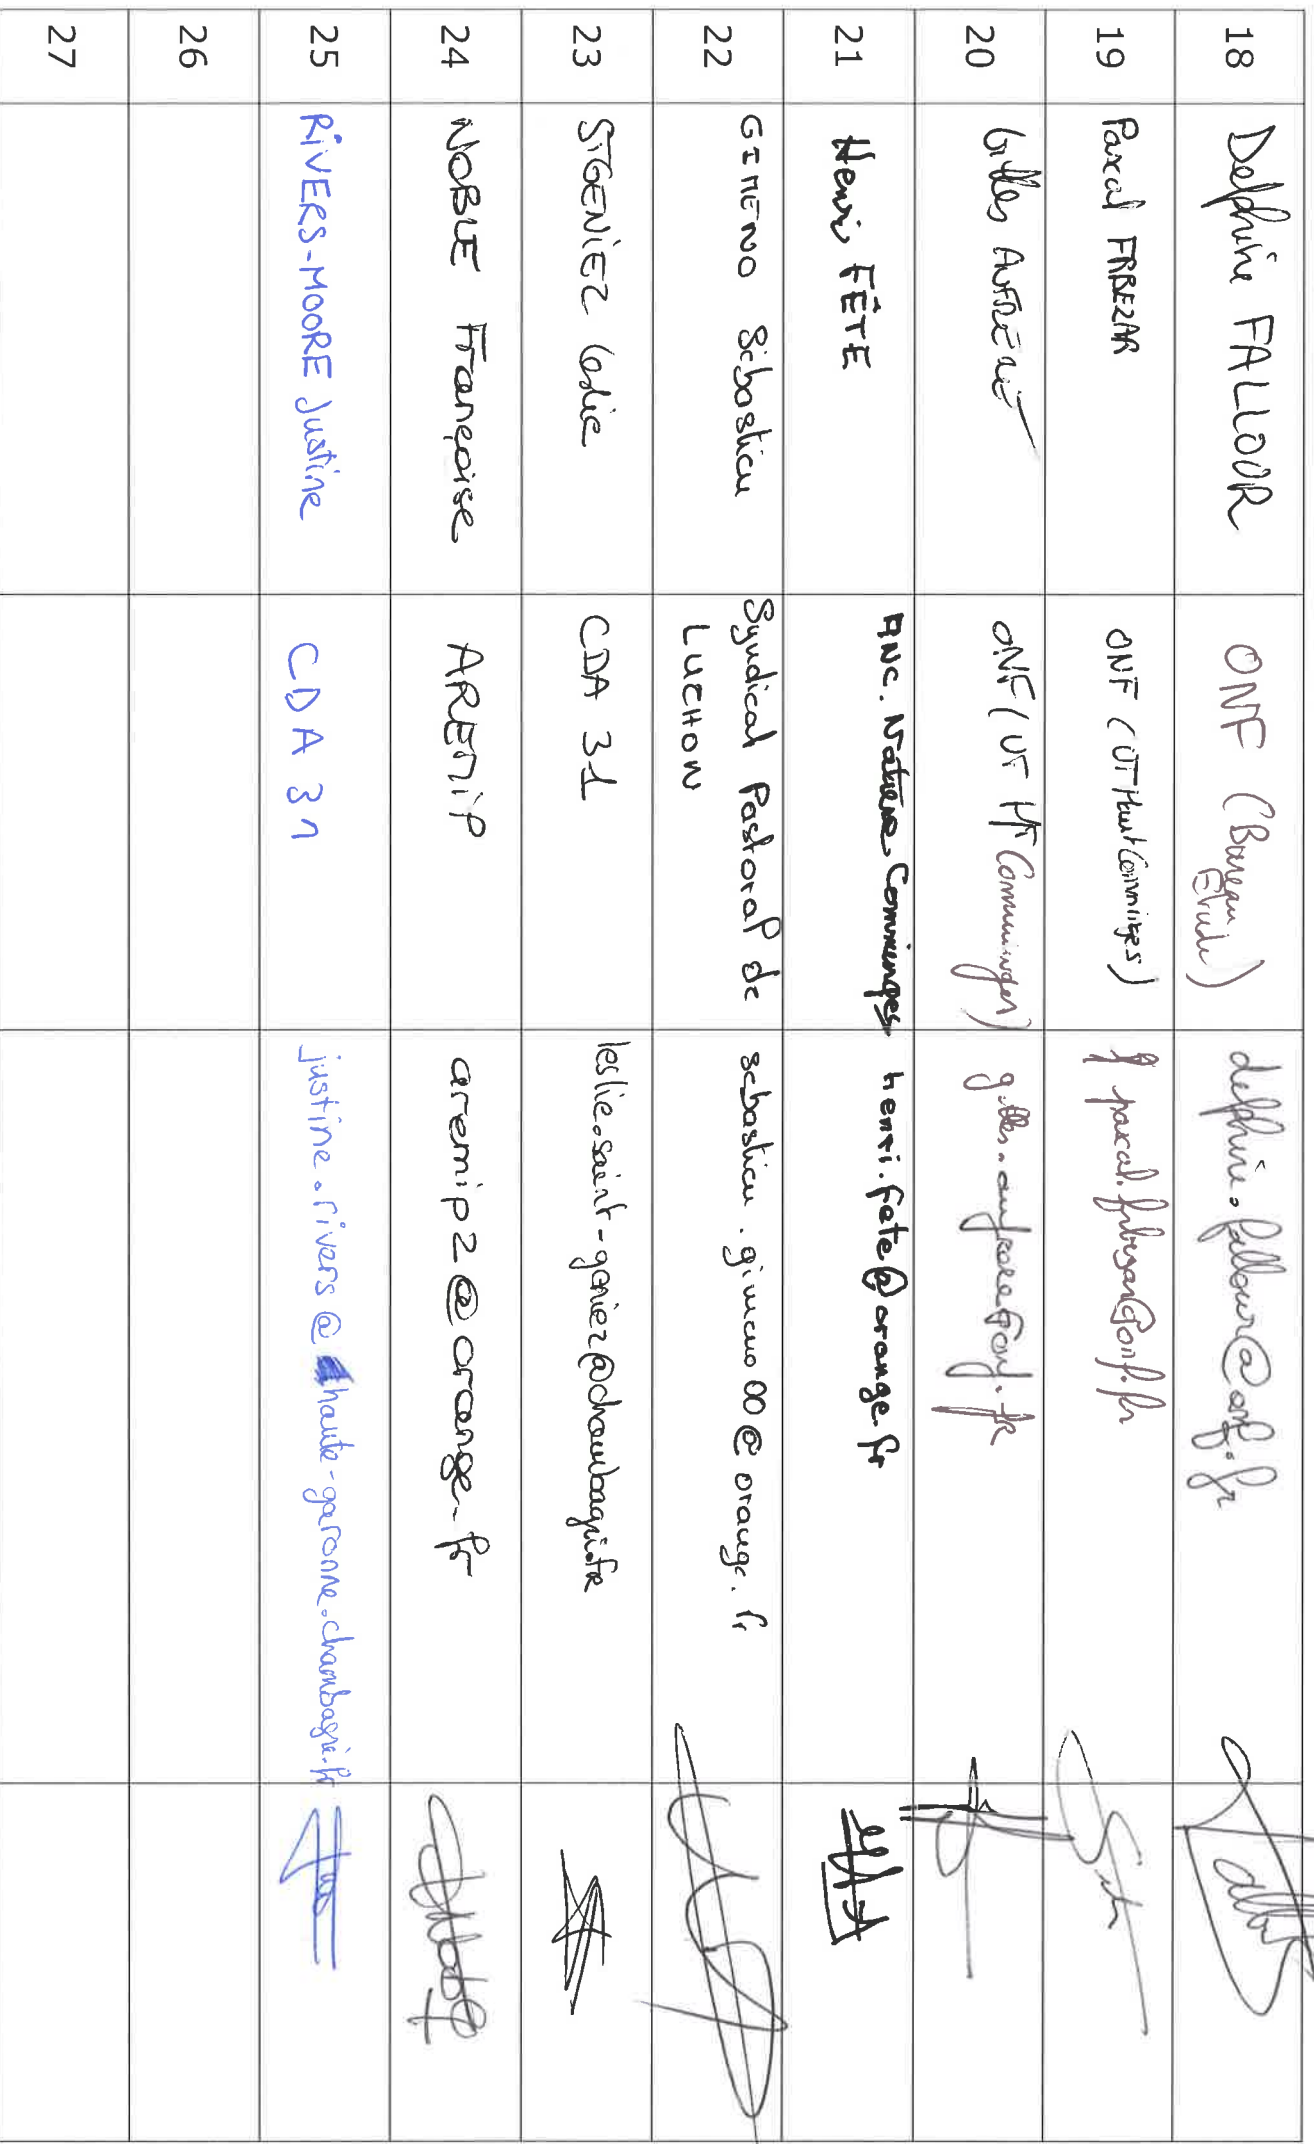 18 Delphine FALLOUR ONF (Bureau Etude) delphine.fallour@onf.fr
19 Pascal FRBEZAR ONF (UT Haut Comminges) pascal.frbezar@onf.fr
20 Gilles ONF (UT Ht Comminges)
21 Henri FÊTE ANC. Nature Comminges henri.fete@orange.fr
22 GIMENO Sébastien Syndicat Pastoral de LUCHON sebastien.gimeno00@orange.fr
23 STGENIEZ Leslie CDA 31 leslie.saint-geniez@chambagri.fr
24 NOBLE Françoise AREMIP aremip2@orange.fr
25 RIVERS-MOORE Justine CDA 31 justine.rivers@haute-garonne.chambagri.fr
26
27